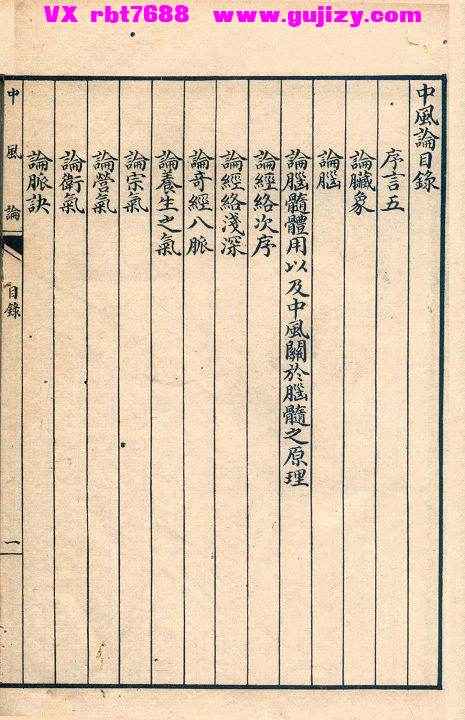 VX rbt7688 www.gujizy.com
中風論目錄
序言五
論臟象
論腦
論腦髓體用以及中風關於腦髓之原理
論經絡次序
論經絡淺深
論奇經八脈
論養生之氣
論宗氣
論營氣
論衛氣
論脈訣
中風論 目錄 一